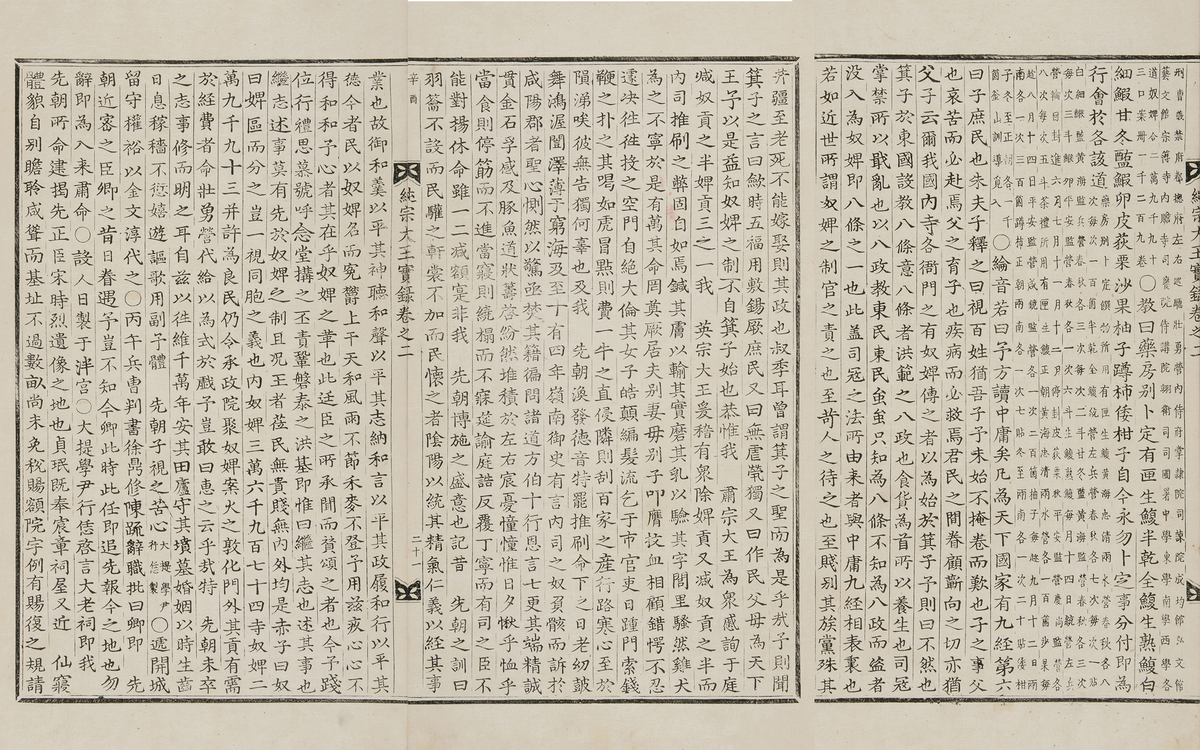 道奴婢合二萬九千九十
三口案冊一千二百九卷 ○敎曰藥房別卜定有匣生鰒半乾全鰒生熟鰒白
細鰕甘冬醢鰕卵皮荻栗沙果柚子蹲柿倭柑子自今永勿卜定事分付即爲
行會於各該道
○綸音若曰予方讀中庸矣凡爲天下國家有九經第六
曰子庶民也朱夫子釋之曰視百姓猶吾子予未始不掩卷而歎也子之事父
也哀苦而必赴焉父之育子也疾病而必救焉君民之間眷顧嚮向之切亦猶
父子云爾我國內寺各衙門之有奴婢傳之者以爲始於箕子予則曰不然也
箕子於東國設敎八條意八條者洪範之八政也食貨爲首所以養生也司冦
掌禁所以戢亂也以八政敎東民東民䖝䖝只知爲八條不知爲八政而盜者
沒入爲奴婢即八條之一也此盖司冦之法所由來者與中庸九經相表裏也
若如近世所謂奴婢之制官之責之也至苛人之待之也至賤別其族黨殊其
井疆至老死不能嫁娶則其政也叔季耳曾謂箕子之聖而爲是乎哉予則聞
箕子之言曰歛時五福用敷錫厥庶民又曰無虐煢獨又曰作民父母爲天下
王予以是益知奴婢之制不自箕子始也恭惟我 肅宗大王爲衆慼詢于庭
减奴貢之半婢貢三之一我 英宗大王爰稽有衆除婢貢又减奴貢之半而
內司推刷之弊固自如焉鍼其膚以輸其實磨其乳以驗其字閭里騷然雞犬
爲之不寧於是有萬其命罔奠厥居夫別妻母別子叩膺抆血相顧錯愕不忍
遽决徃徃投之空門自絶大倫其女子皓顚編髮流乞于市官吏日踵門索錢
鞭之扑之其喝如虎冒點則費一牛之直侵隣則刮百家之産行路寒心至於
隕涕唉彼無告獨何辜也及我 先朝渙發德音特罷推刷命下之日老幼皷
舞鴻渥闓澤薄于窮海及至十有四年嶺南御史有言內司之奴貿骸而訴於
咸陽郡者聖心惻然以驚亟焚其籍徧問諸道方伯十行恩言七更其端精誠
貫金石孚感及豚魚道狀籌啓紛然堆積於左右宸憂憧憧惟日夕愀乎恤乎
當食則停筯而不進當寢則繞榻而不寐筵諭庭誥反覆丁寧而有司之臣不
能對揚休命雖一二减額寔非我 先朝博施之盛意也記昔 先朝之訓曰
羽籥不設而民驩之軒裳不加而民懷之者陰陽以統其精氣仁義以經其事
辛酉 純宗大王實錄卷之二 二十一
業也故御和羹以平其神聽和聲以平其志納和言以平其政履和行以平其
德今者民以奴婢名而寃欝上干天和風雨不節禾麥不登予用玆疚心心不
得和和予心者其在乎奴婢之一章也此廷臣之所承聞而贊頌之者也今予踐
位行禮思慕號呼念堂搆之丕責鞏磐泰之洪基即惟曰繼其志也述其事也
繼志述事莫有先於奴婢之制且况王者莅民無貴賤無內外均是赤子曰奴
曰婢區而分之豈一視同胞之義也內奴婢三萬六千九百七十四寺奴婢二
萬九千九十三并許爲良民仍令承政院聚奴婢案火之敦化門外其貢有需
於經費者命壯勇營代給以爲式於戲予豈敢曰惠之云乎哉特 先朝未卒
之志事修而明之耳自玆以徃維千萬年安其田廬守其墳墓婚姻以時生齒
日息稼穡不愆嬉遊謳歌用副子體 先朝子視之苦心 大提學尹行恁製 ○遞開城
留守權裕以金文淳代之○丙午兵曹判書徐鼎修陳疏辭職批曰卿即 先
朝近密之臣卿之昔日眷遇予豈不知今卿此時此任即追先報今之地也勿
辭即爲入來肅命○設人日製于泮宮○大提學尹行恁啓言大老祠即我
先朝所命建揭先正臣宋時烈遺像之地也貞珉旣奉宸章祠屋又近 仙寢
體貌自別瞻聆咸聳而基址不過數畝尙未免稅賜額院宇例有賜復之規請